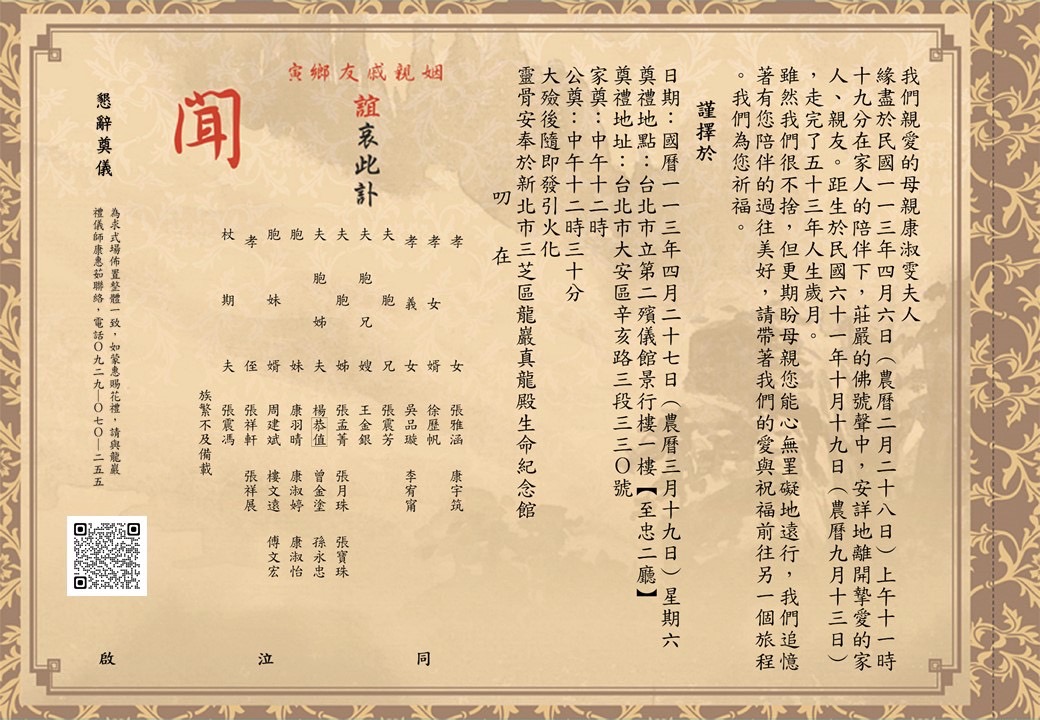 我們親愛的母親康淑雯夫人
緣盡於民國一一三年四月六日（農曆二月二十八日）上午十一時
十九分在家人的陪伴下，莊嚴的佛號聲中，安詳地離開摯愛的家
人、親友。距生於民國六十一年十月十九日（農曆九月十三日）
，走完了五十三年人生歲月。
雖然我們很不捨，但更期盼母親您能心無罣礙地遠行，我們追憶
著有您陪伴的過往美好，請帶著我們的愛與祝福前往另一個旅程
。我們為您祈福。
謹擇於
日期：國曆一一三年四月二十七日（農曆三月十九日）星期六
奠禮地點：台北市立第二殯儀館景行樓一樓【至忠二廳】
奠禮地址：台北市大安區辛亥路三段三三０號
家奠：中午十二時
公奠：中午十二時三十分
大殮後隨即發引火化
靈骨安奉於新北市三芝區龍巖真龍殿生命紀念館
叨 在
姻親戚友鄉寅
誼哀此訃
聞
孝 女 張雅涵 康宇筑
孝女婿 徐歷帆
孝義女 吳品璇 李宥甯
夫胞兄 張震芳
夫胞兄嫂 王金銀
夫胞姊 張孟菁 張月珠 張寶珠
夫胞姊夫 楊恭值 曾金塗 孫永忠
胞 妹 康羽晴 康淑婷 康淑怡
胞妹婿 周建斌 樓文遠 傅文宏
孝 侄 張祥軒 張祥展
杖期夫 張震馮
族繁不及備載
同 泣 啟
懇辭奠儀
為求式場佈置整體一致，如蒙惠賜花禮，請與龍巖
禮儀師康惠茹聯絡，電話０九二九—０七０—二五五